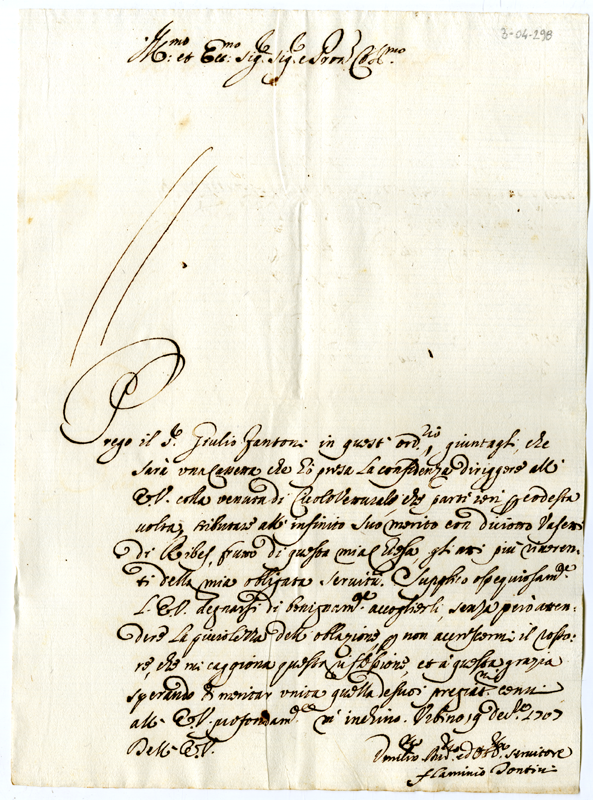 3-04-298
Ill.mo et Ecc.mo Sig.r Sig.r e Pron. Col.mo
Prego il S.r Giulio Fantoni in quest' ord.rio, giuntagli, che
sarà una lettera che hò presa la confidenza diriggere all'
E.V. colla venuta di che partì ieri p codesta
volta, tributare all' infinito suo merito con diciotto Vasetti
di Ribes, frutto di questa mia, gli atti più riveren-
ti della mia obligata servitù. Supplico ossequiosam.te
L'E.V. degnarsi di benignam.te accoglierli, senza però atten-
dere la picciolezza dell' oblazione p non accrescermi il rosso-
re, che mi caggiona questa, et à questa grazia
sperando di meritar unita quella de suoi pregiat.mi cenni
all' E.V. profondam.te m' inchino. Urbino 19 Dec.re 1707
Dell' E.V.
Umiliss.o Dev.mo ed Obl.mo Servitore
Flaminio Dontini